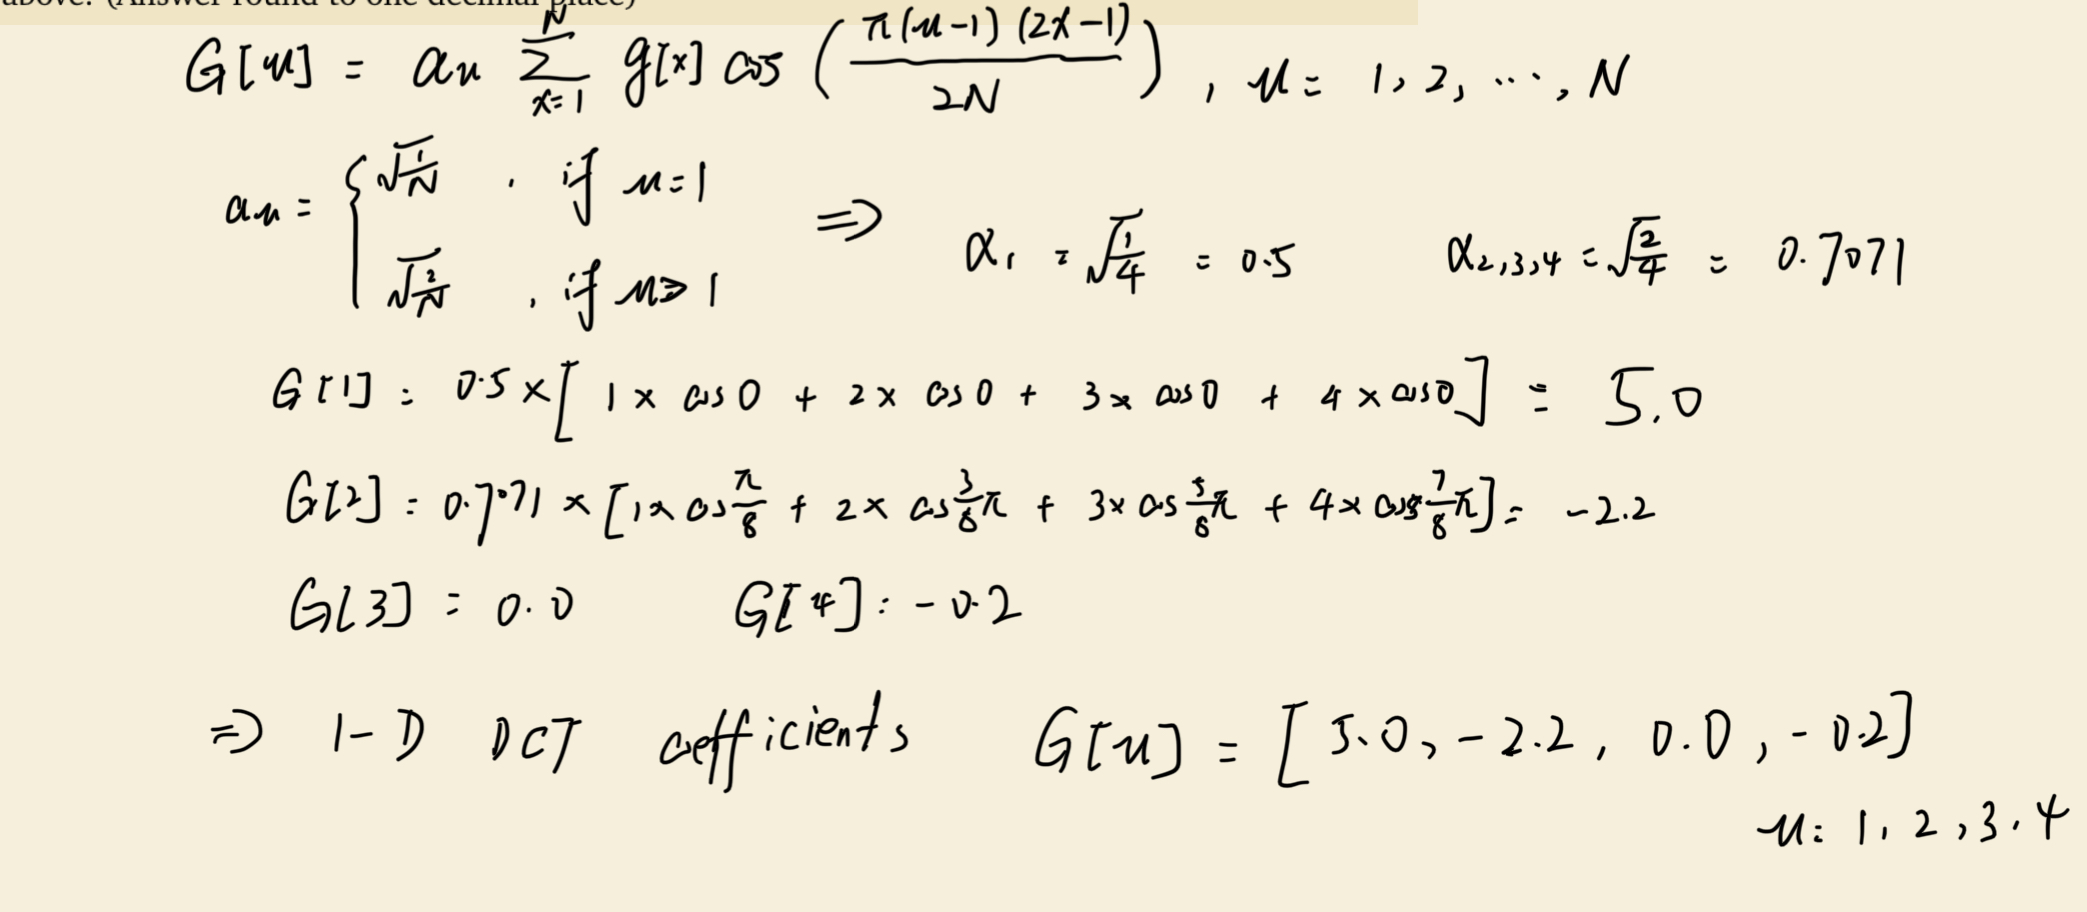 above. (Answer round to one decimal place)
G[u] = αu Σ_{x=1}^{N} g[x] cos (π(u-1)(2x-1) / 2N), u = 1, 2, ..., N
αu = { √(1/N), if u = 1
√(2/N), if u > 1
⇒ α₁ = √(1/4) = 0.5 α₂,₃,₄ = √(2/4) = 0.7071
G[1] = 0.5 × [1 × cos 0 + 2 × cos 0 + 3 × cos 0 + 4 × cos 0] = 5.0
G[2] = 0.7071 × [1 × cos π/8 + 2 × cos 3/8 π + 3 × cos 5/8 π + 4 × cos 7/8 π] = -2.2
G[3] = 0.0 G[4] = -0.2
⇒ 1-D DCT coefficients G[u] = [5.0, -2.2, 0.0, -0.2]
u = 1, 2, 3, 4